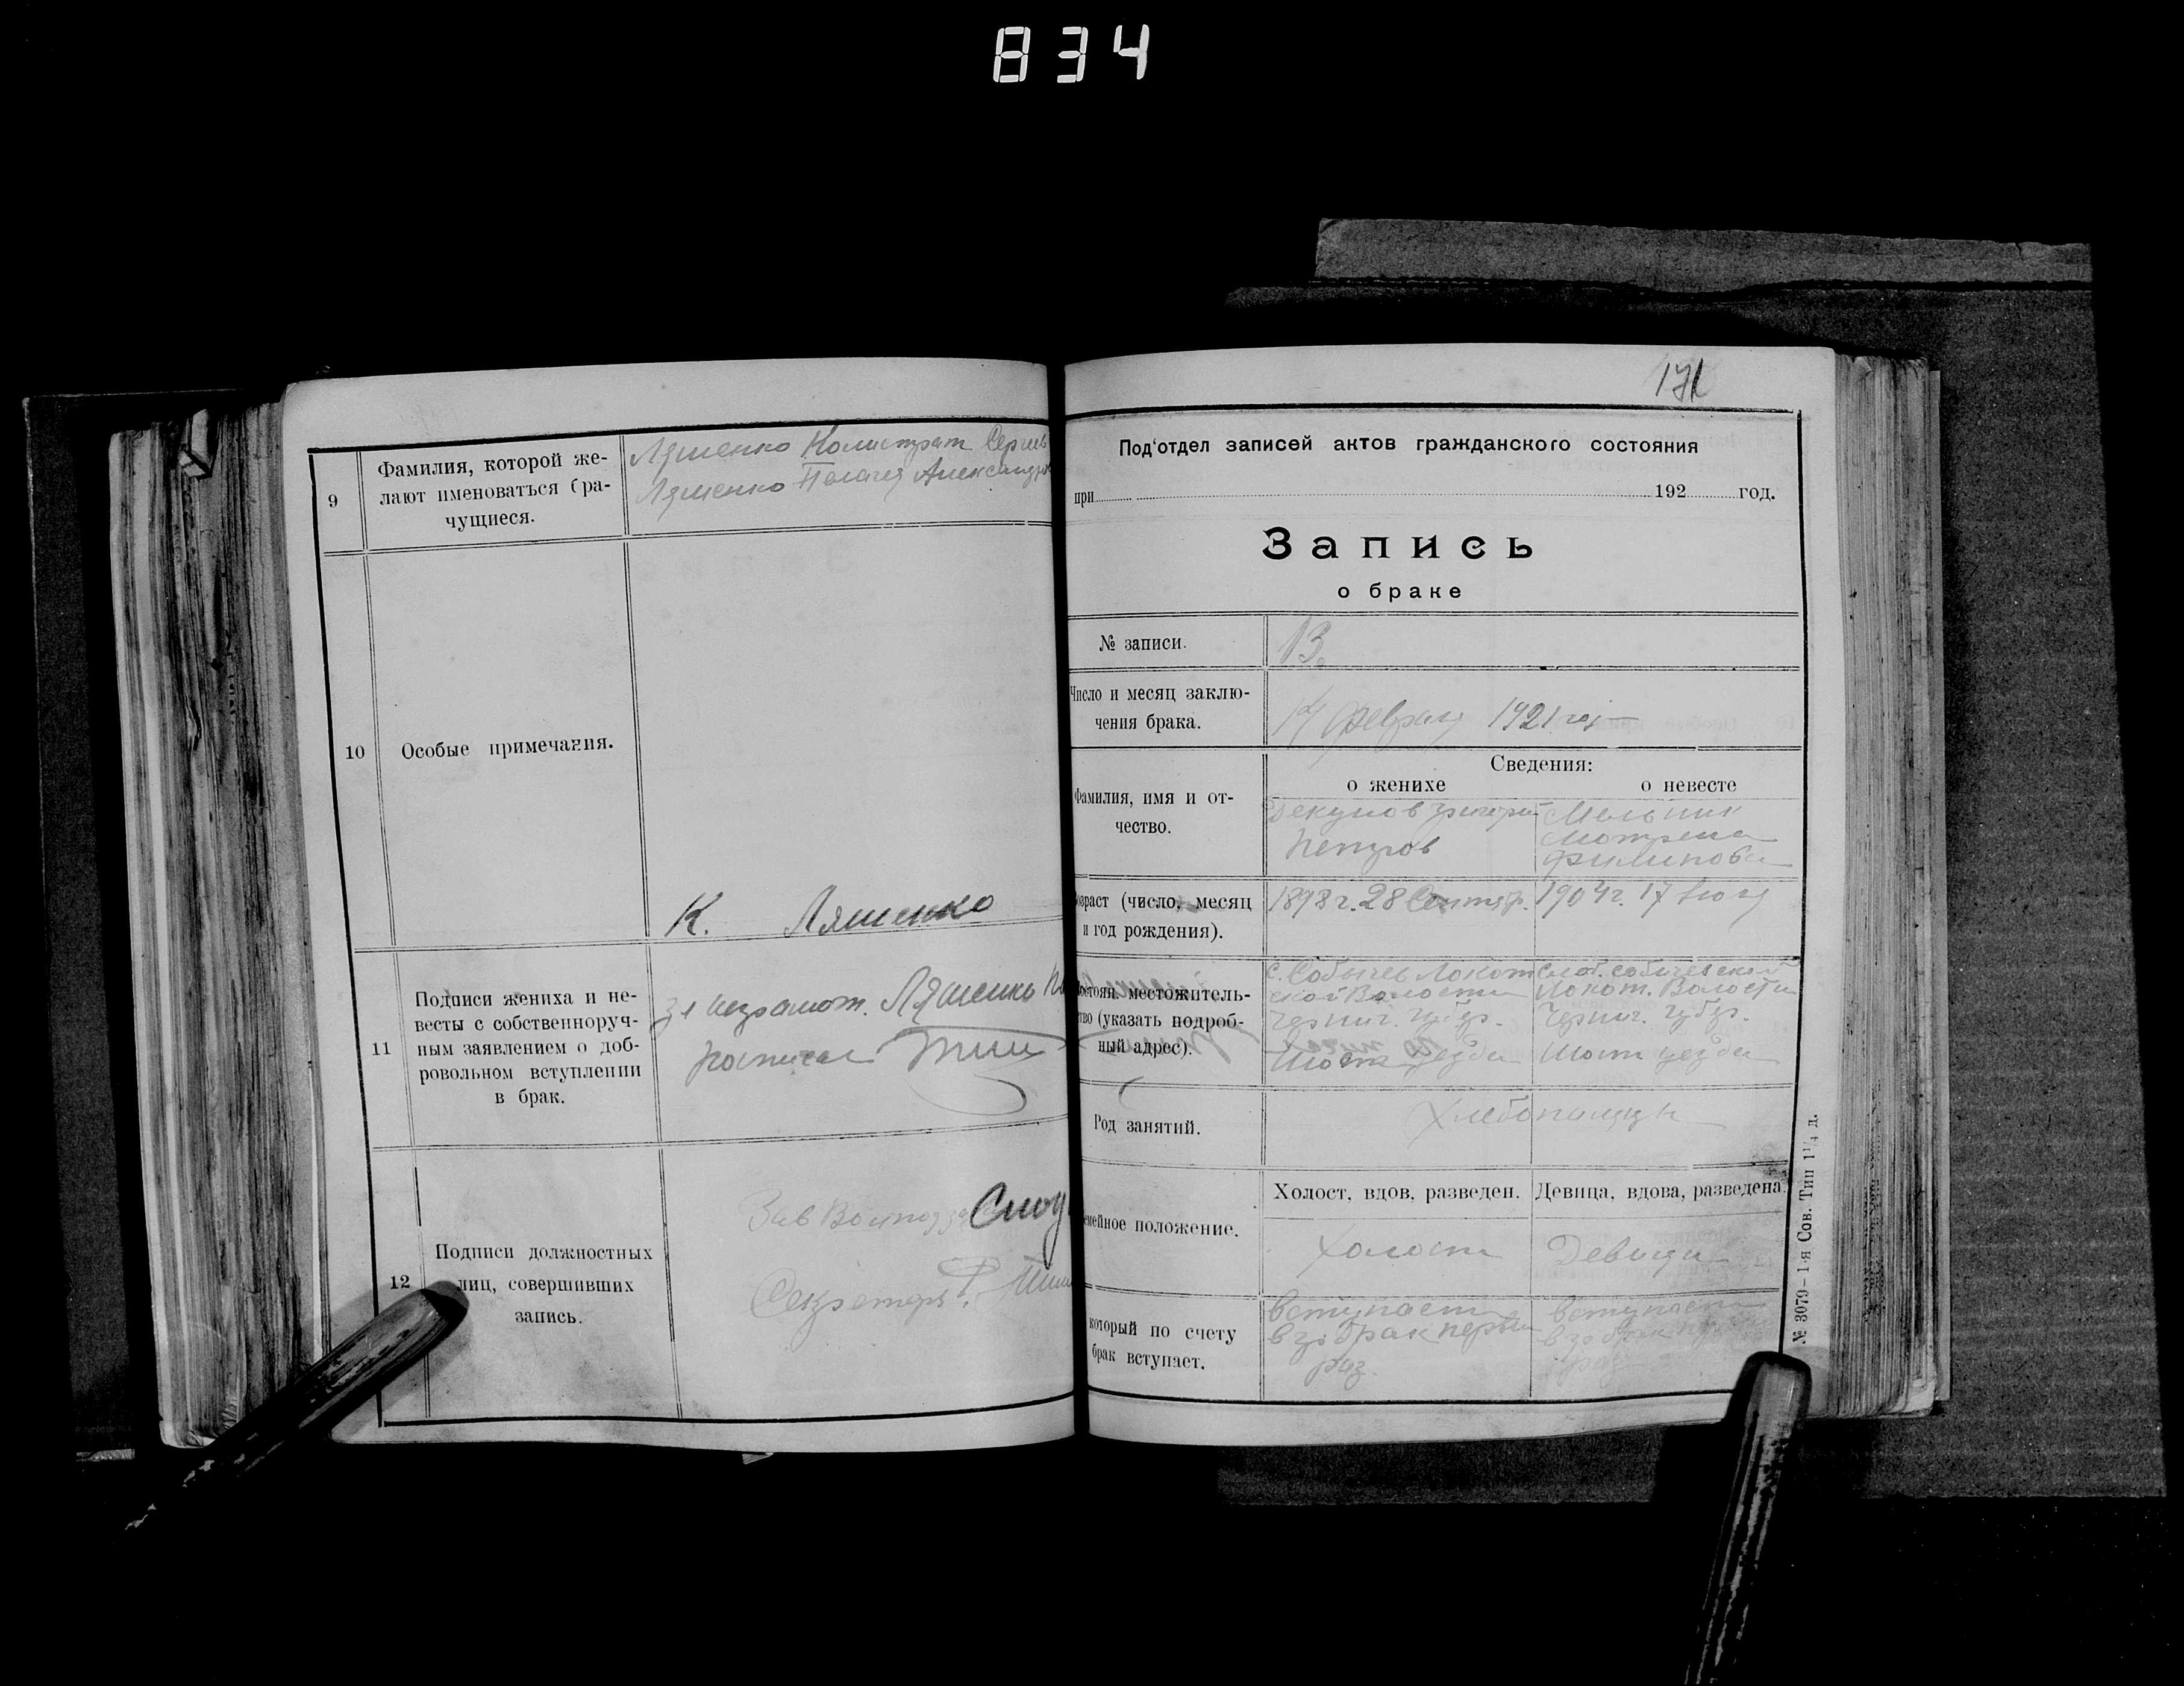 834
9
Фамилия, которой же-
лают именоваться бра-
чущиеся.
Ляшенко Калистрат Сергиев
Ляшенко Пелагея Александров
10
Особые примечания.
К. Ляшенко
11
Подписи жениха и не-
весты с собственноруч-
ным заявлением о доб-
ровольном вступлении
в брак.
за неграмот. Ляшенко
росписался
12
Подписи должностных
лиц, совершивших
запись.
Зав
Секретарь
171
Под'отдел записей актов гражданского состояния
при 192 год.
Запись
о браке
№ записи.
13.
Число и месяц заклю-
чения брака.
14 февраля 1921 год
Сведения:
о женихе
о невесте
Фамилия, имя и от-
чество.
Декунов Григорий
Петров
Мельник
Мотрена
Филипова
возраст (число, месяц
и год рождения).
1898 г. 28 Сентяр.
1904 г. 17 Июля
Постоян. местожитель-
ство (указать подроб-
ный адрес).
с. Собычев Локот
ской Волости
Черниг. губер.
Шостк уезда
Слоб. собичевской
Локот. Волости
Черниг. губер.
Шостк уезда
Род занятий.
Хлебопашец
Семейное положение.
Холост, вдов, разведен.
Девица, вдова, разведена.
Холост
Девица
который по счету
брак вступает.
вступает
в за брак первый
раз.
вступает
в за брак
раз
№ 3079—1-я Сов. Тип 1¼ д.